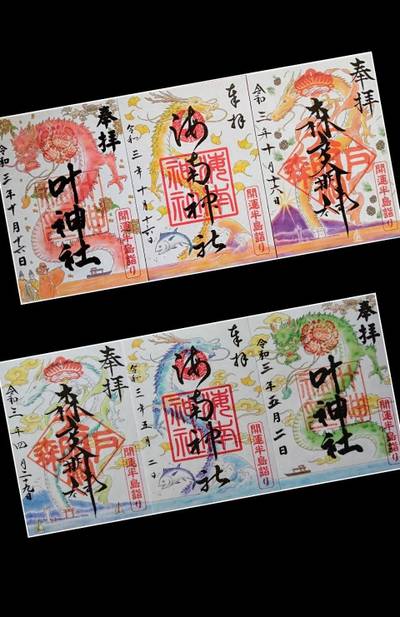 奉拝
森戸大明神
令和三年十月十六日
開運半島詣り
奉拝
海南神社
令和三年十月十六日
開運半島詣り
奉拝
叶神社
令和三年十月十六日
開運半島詣り
奉拝
叶神社
令和三年五月二日
開運半島詣り
奉拝
海南神社
令和三年五月二日
開運半島詣り
奉拝
森戸大明神
令和三年四月二十九日
開運半島詣り